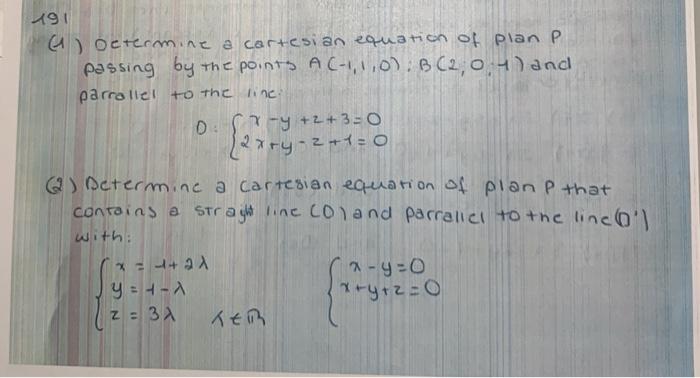 191
(1) Determine a cartesian equation of plan P
passing by the points A(-1,1,0); B(2,0,-1) and
parrallel to the line:
D: { x-y+z+3=0
2x+y-z+1=0
(2) Determine a cartesian equation of plan P that
contains a strayt line (D) and parrallel to the line (D')
with:
{ x = -1+2λ { x-y=0
y = 1-λ x+y+z=0
z = 3λ λ∈ℝ